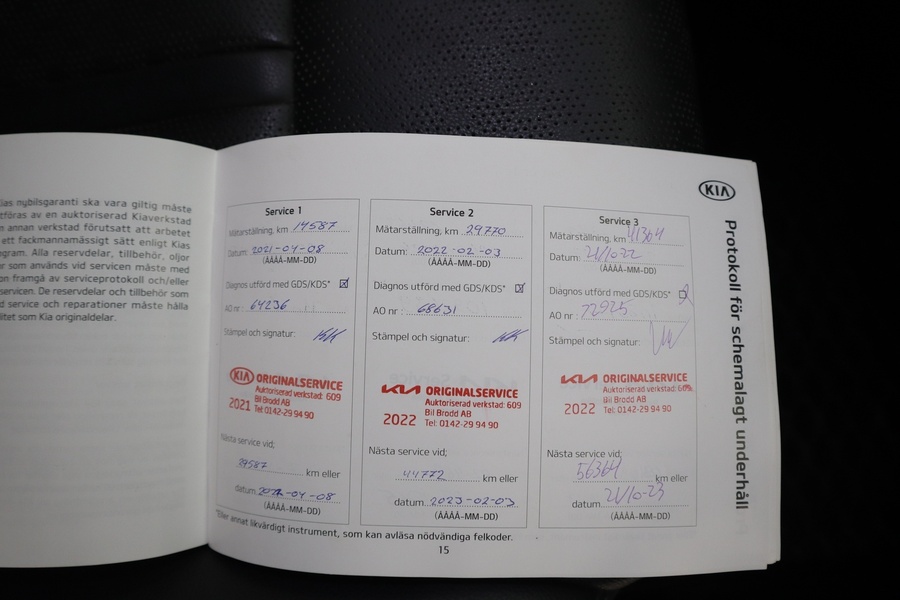 ias nybilsgaranti ska vara giltig måste
tföras av en auktoriserad Kiaverkstad
n annan verkstad förutsatt att arbetet
ett fackmannamässigt sätt enligt Kias
gram. Alla reservdelar, tillbehör, oljor
r som används vid servicen måste med
on framgå av serviceprotokoll och/eller
servicen. De reservdelar och tillbehör som
d service och reparationer måste hålla
litet som Kia originaldelar.
KIA
Protokoll för schemalagt underhåll
Service 1
Mätarställning, km 14587
Datum: 2021-04-08
(ÅÅÅÅ-MM-DD)
Diagnos utförd med GDS/KDS*
AO nr: 64236
Stämpel och signatur:
KIA ORIGINALSERVICE
Auktoriserad verkstad: 609
Bil Brodd AB
2021 Tel: 0142-29 94 90
Nästa service vid;
29587 km eller
datum 2022-04-08
(ÅÅÅÅ-MM-DD)
Service 2
Mätarställning, km 29770
Datum: 2022-02-03
(ÅÅÅÅ-MM-DD)
Diagnos utförd med GDS/KDS*
AO nr: 68631
Stämpel och signatur:
KIA ORIGINALSERVICE
Auktoriserad verkstad: 609
Bil Brodd AB
2022 Tel: 0142-29 94 90
Nästa service vid;
44772 km eller
datum 2023-02-03
(ÅÅÅÅ-MM-DD)
Service 3
Mätarställning, km 41364
Datum: 21/10-22
(ÅÅÅÅ-MM-DD)
Diagnos utförd med GDS/KDS*
AO nr: 72925
Stämpel och signatur:
KIA ORIGINALSERVICE
Auktoriserad verkstad: 609
Bil Brodd AB
2022 Tel: 0142-29 94 90
Nästa service vid;
56364 km eller
datum 21/10-23
(ÅÅÅÅ-MM-DD)
*Eller annat likvärdigt instrument, som kan avläsa nödvändiga felkoder.
15